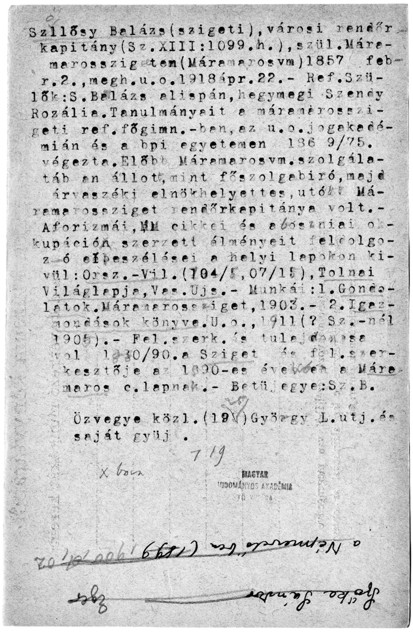 Szllősy Balázs(szigeti),városi rendőr
kapitány(Sz.XIII:1099.h.),szül.Mára-
marosszigeten(Máramarosvm)1857 feb-
r.2.,megh.u.o.1918ápr.22.- Ref.Szü-
lők:S.Balázs alispán,hegymegi Szendy
Rozália.Tanulmányait a máramarosszi-
geti ref.főgimn.-ban,az u.o.jogakadé-
mián és a bpi egyetemen 186 9/75.
végezta.Előbb Máramarosvm.szolgála-
táb an állott,mint főszolgabiró,majd
árvaszéki elnökhelyettes,utóbb Má-
ramarossziget rendőrkapitánya volt.-
Aforizmái, cikkei és a boszniai ok-
kupáción szerzett élményeit feldolgo-
z ó elbeszélései a helyi lapokon ki-
vül:Orsz.-Vil.(104/5,07/15),Tolnai
Világlapja,Vas.Ujs.- Munkái:1.Gondo-
latok.Máramarossziget,1903.- 2.Igaz-
mondások könyve.U.o.,1911(? Sz.-nél
1905).- Fel.szerk.és tulajdonosa
vol 1880/90.a Sziget és fel.szer-
kesztője az 1890-es években a Mára-
maros c.lapnak.- Betüjegye:Sz.B.
Özvegye közl.(1927)György L.utj.és
saját gyüj .
719
x bocs
MAGYAR
TUDOMÁNYOS AKADÉMIA
a Népnevelőben (1899
1900, 01, 02
Szőke Sándor
Eger